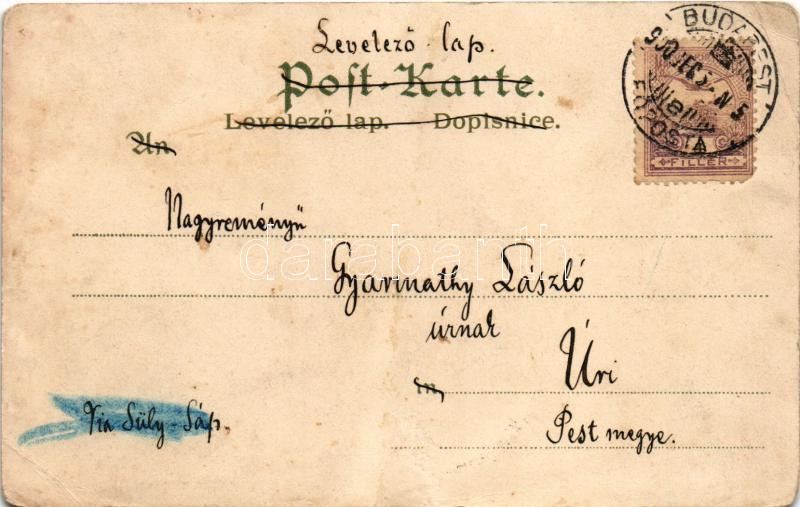 Levelező lap.
Post-Karte.
Levelező lap. Dopisnice.
An
Nagyreményű
Gyarmathy László
úrnak
in
Úri
Via Süly-Sáp.
Pest megye.
BUDAPEST
FŐPOSTA
FILLÉR
darabanth